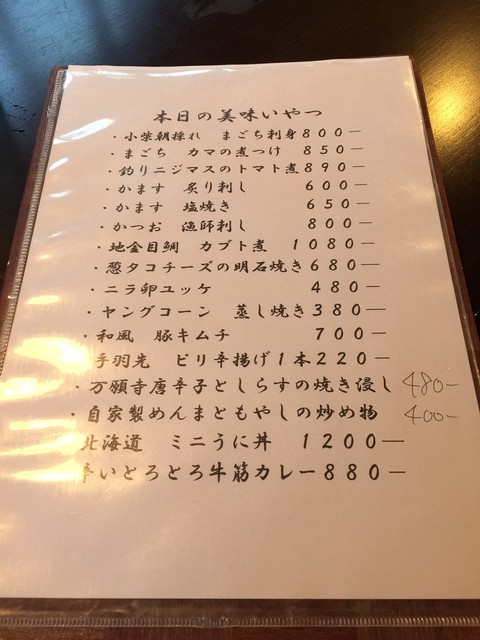 本日の美味いやつ
・小柴朝採れ　まごち刺身８００―
・まごち　カマの煮つけ　８５０―
・釣りニジマスのトマト煮８９０―
・かます　炙り刺し　６００―
・かます　塩焼き　６５０―
・かつお　漁師刺し　８００―
・地金目鯛　カブト煮　１０８０―
・葱タコチーズの明石焼き６８０―
・ニラ卵ユッケ　４８０―
・ヤングコーン　蒸し焼き３８０―
・和風　豚キムチ　７００―
手羽先　ピリ辛揚げ１本２２０―
・万願寺唐辛子としらすの焼き浸し 480―
・自家製めんまともやしの炒め物 400―
北海道　ミニうに丼　１２００―
辛いとろとろ牛筋カレー８８０―